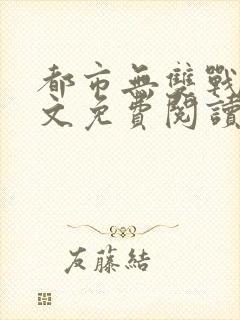 都市無雙戰
文免費閱讀
友藤結